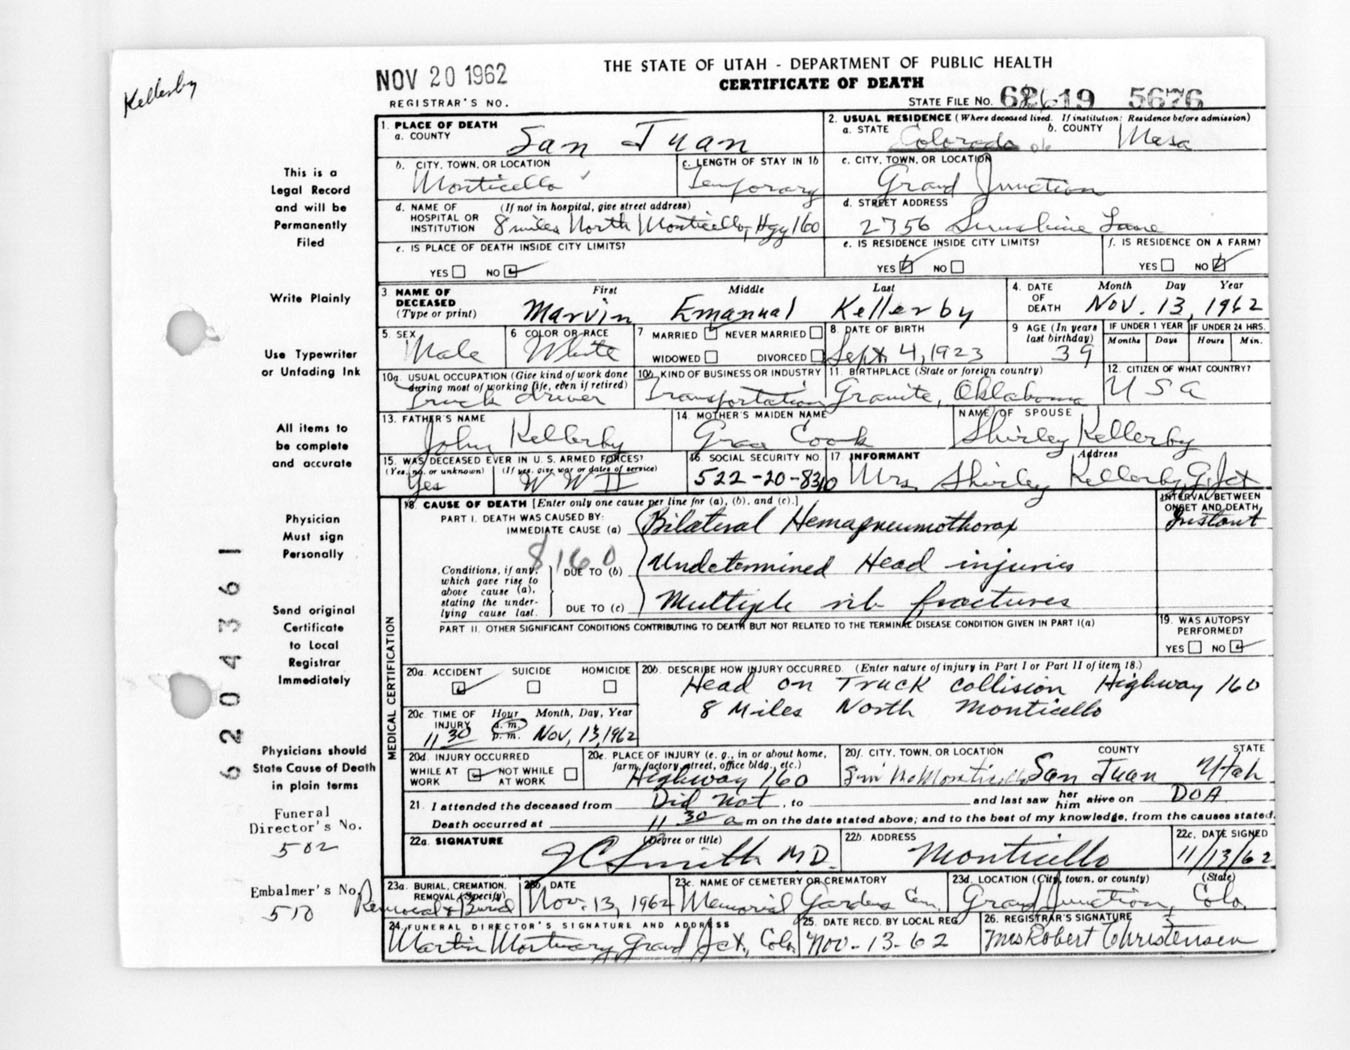 Kellerby
NOV 20 1962
THE STATE OF UTAH - DEPARTMENT OF PUBLIC HEALTH
CERTIFICATE OF DEATH
REGISTRAR'S NO.
STATE FILE NO. 19 5676
1. PLACE OF DEATH
a. COUNTY San Juan
2. USUAL RESIDENCE (Where deceased lived. If institution: Residence before admission)
a. STATE Colorado b. COUNTY Mesa
b. CITY, TOWN, OR LOCATION Monticello
c. LENGTH OF STAY IN 1b Temporary
c. CITY, TOWN, OR LOCATION Grand Junction
d. NAME OF HOSPITAL OR INSTITUTION (If not in hospital, give street address) 8 miles North Monticello, Hgy 160
d. STREET ADDRESS 2756 Sunshine Lane
e. IS PLACE OF DEATH INSIDE CITY LIMITS?
YES NO
e. IS RESIDENCE INSIDE CITY LIMITS?
YES NO
f. IS RESIDENCE ON A FARM?
YES NO
3 NAME OF DECEASED (Type or print) First Middle Last
Marvin Emanual Kellerby
4. DATE OF DEATH Month Day Year
Nov. 13, 1962
5. SEX Male
6 COLOR OR RACE White
7 MARRIED NEVER MARRIED
WIDOWED DIVORCED
8 DATE OF BIRTH Sept 4, 1923
9 AGE (In years last birthday) 39
IF UNDER 1 YEAR Months Days
IF UNDER 24 HRS. Hours Min.
10a. USUAL OCCUPATION (Give kind of work done during most of working life, even if retired) Truck driver
10b. KIND OF BUSINESS OR INDUSTRY Transportation
11. BIRTHPLACE (State or foreign country) Granite, Oklahoma
12. CITIZEN OF WHAT COUNTRY? USA
13. FATHER'S NAME John Kellerby
14 MOTHER'S MAIDEN NAME Cook
NAME OF SPOUSE Shirley Kellerby
15. WAS DECEASED EVER IN U.S. ARMED FORCES?
(Yes, no, or unknown) (If yes, give war or dates of service)
Yes WW II
16 SOCIAL SECURITY NO. 522-20-8310
17 INFORMANT Address
Mrs Shirley Kellerby, G. Jct
18. CAUSE OF DEATH [Enter only one cause per line for (a), (b), and (c).]
INTERVAL BETWEEN ONSET AND DEATH
PART I. DEATH WAS CAUSED BY:
IMMEDIATE CAUSE (a) Bilateral Hemapneumothorax Instant
8160
Conditions, if any, which gave rise to above cause (a), stating the underlying cause last.
DUE TO (b) Undetermined Head injuries
DUE TO (c) Multiple rib fractures
PART II. OTHER SIGNIFICANT CONDITIONS CONTRIBUTING TO DEATH BUT NOT RELATED TO THE TERMINAL DISEASE CONDITION GIVEN IN PART I(a)
19. WAS AUTOPSY PERFORMED?
YES NO
MEDICAL CERTIFICATION
20a. ACCIDENT SUICIDE HOMICIDE
20b. DESCRIBE HOW INJURY OCCURRED. (Enter nature of injury in Part I or Part II of item 18.)
Head on Truck collision Highway 160
8 Miles North Monticello
20c. TIME OF INJURY Hour Month, Day, Year
11 30 a.m. p.m. Nov, 13, 1962
20d. INJURY OCCURRED
WHILE AT WORK NOT WHILE AT WORK
20e. PLACE OF INJURY (e. g., in or about home, farm, factory, street, office bldg., etc.)
Highway 160
20f. CITY, TOWN, OR LOCATION COUNTY STATE
8 mi No Monticello San Juan Utah
21. I attended the deceased from Did not, to and last saw her him alive on DOA
Death occurred at 11 30 a m on the date stated above; and to the best of my knowledge, from the causes stated.
22a. SIGNATURE (Degree or title)
JC Smith MD.
22b. ADDRESS Monticello
22c. DATE SIGNED 11/13/62
23a. BURIAL, CREMATION, REMOVAL (Specify) Removal & Burial
23b. DATE Nov. 13, 1962
23c. NAME OF CEMETERY OR CREMATORY Memorial Gardens Cem,
23d. LOCATION (City, town, or county) (State)
Grand Junction, Colo.
24 FUNERAL DIRECTOR'S SIGNATURE AND ADDRESS
Martin Mortuary Grand Jct, Colo.
25. DATE RECD. BY LOCAL REG. Nov-13-62
26. REGISTRAR'S SIGNATURE
Mrs Robert Christensen
This is a
Legal Record
and will be
Permanently
Filed
Write Plainly
Use Typewriter
or Unfading Ink
All items to
be complete
and accurate
Physician
Must sign
Personally
Send original
Certificate
to Local
Registrar
Immediately
Physicians should
State Cause of Death
in plain terms
Funeral
Director's No.
502
Embalmer's No.
510
62 204361